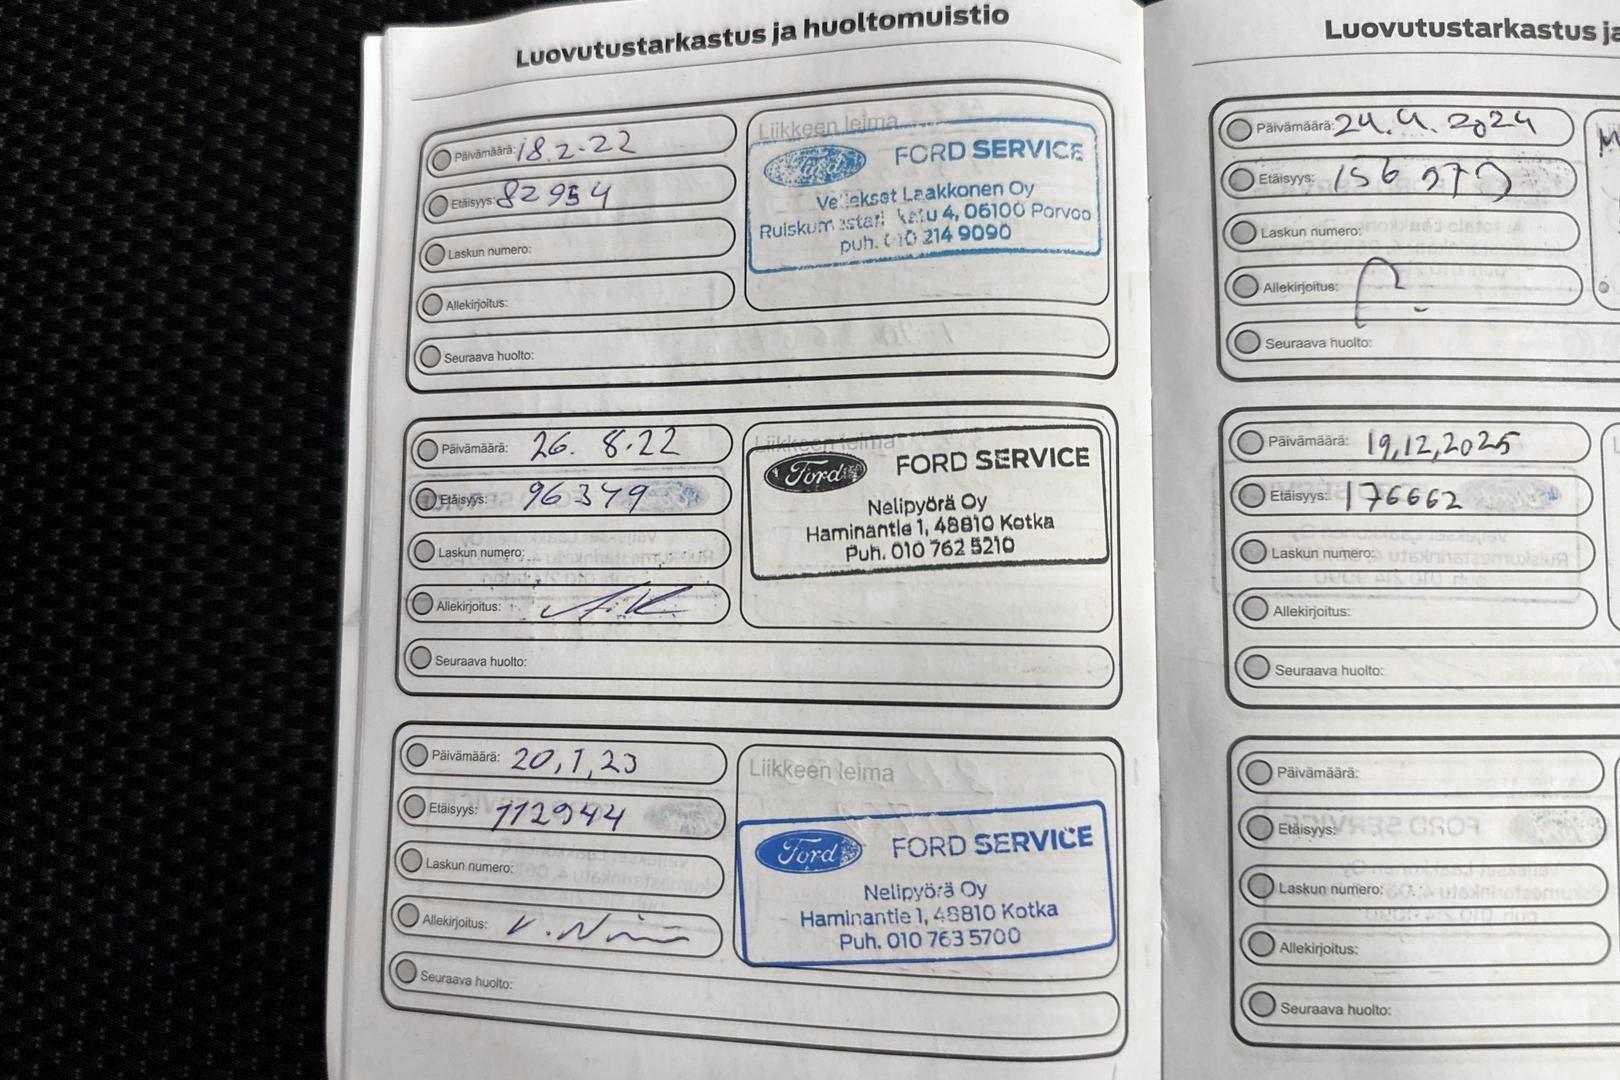 Luovutustarkastus ja huoltomuistio
Päivämäärä: 18.2.22
Etäisyys: 82954
Laskun numero:
Allekirjoitus:
Seuraava huolto:
Liikkeen leima
Ford FORD SERVICE
Veljekset Laakkonen Oy
Ruiskumestarinkatu 4, 06100 Porvoo
puh. 010 214 9090
Päivämäärä: 26. 8.22
Etäisyys: 96349
Laskun numero:
Allekirjoitus:
Seuraava huolto:
Liikkeen leima
Ford FORD SERVICE
Nelipyörä Oy
Haminantie 1, 48810 Kotka
Puh. 010 762 5210
Päivämäärä: 20,1,23
Etäisyys: 112944
Laskun numero:
Allekirjoitus:
Seuraava huolto:
Liikkeen leima
Ford FORD SERVICE
Nelipyörä Oy
Haminantie 1, 48810 Kotka
Puh. 010 763 5700
Luovutustarkastus ja
Päivämäärä: 24.4.2024
Etäisyys: 156 979
Laskun numero:
Allekirjoitus:
Seuraava huolto:
Päivämäärä: 19,12,2025
Etäisyys: 176662
Laskun numero:
Allekirjoitus:
Seuraava huolto:
Päivämäärä:
Etäisyys:
Laskun numero:
Allekirjoitus:
Seuraava huolto: